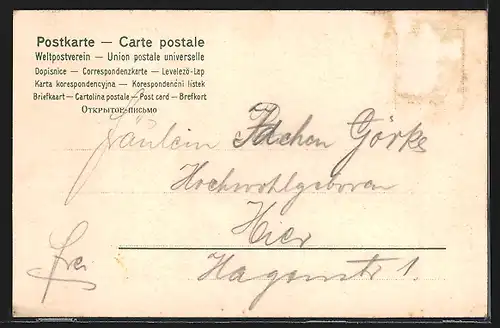 Postkarte — Carte postale
Weltpostverein — Union postale universelle
Dopisnice — Correspondenzkarte — Levelező-Lap
Karta korespondencyjna — Korespondenční lístek
Briefkaart — Cartolina postale — Post card — Brefkort
Открытое письмо
Fräulein Görke
Hochwohlgeboren
Hier
frei
Hagenstr 1.